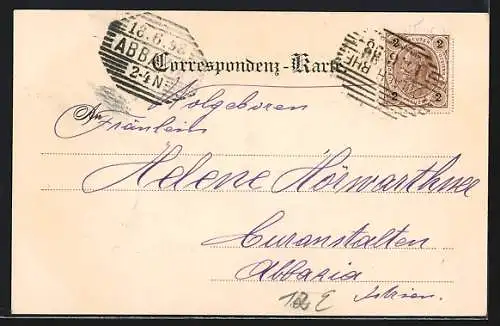 18.6.98
ABBA
2-4 N
2 2
2 2
Correspondenz-Karte
An Wolgeboren
Fräulein
Helene Hörwarthner
Curanstalten
Abbazia
Istrien.
12 E